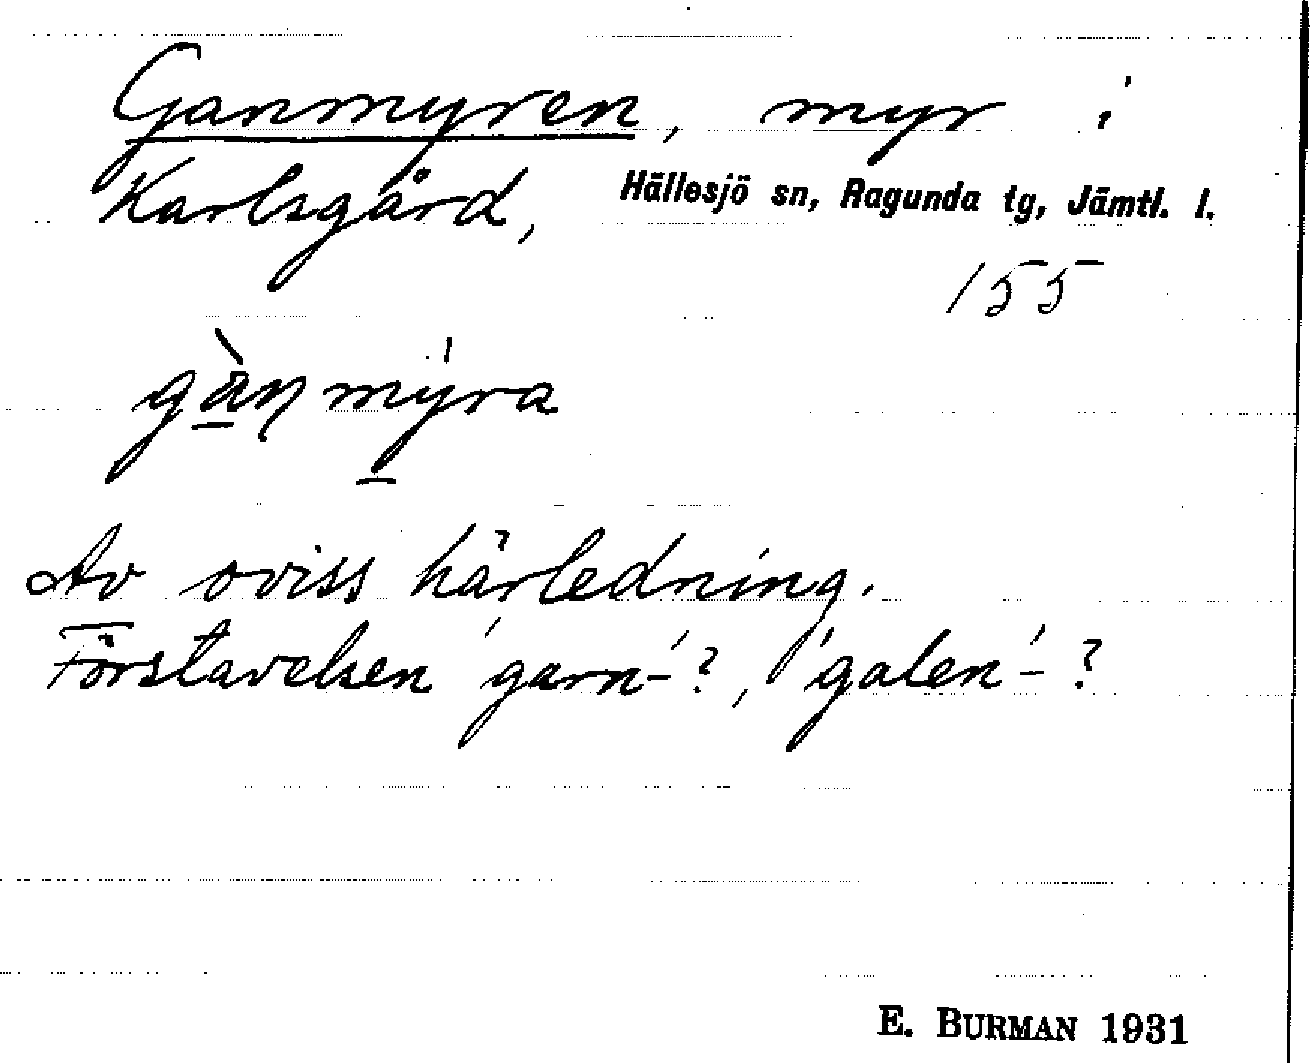 Ganmyren, myr i
Karlsgård, Hällesjö sn, Ragunda tg, Jämtl. l.
155
gàn mýra
Av oviss härledning.
Förstavelsen 'garn-'?, 'galen'-?
E. BURMAN 1931